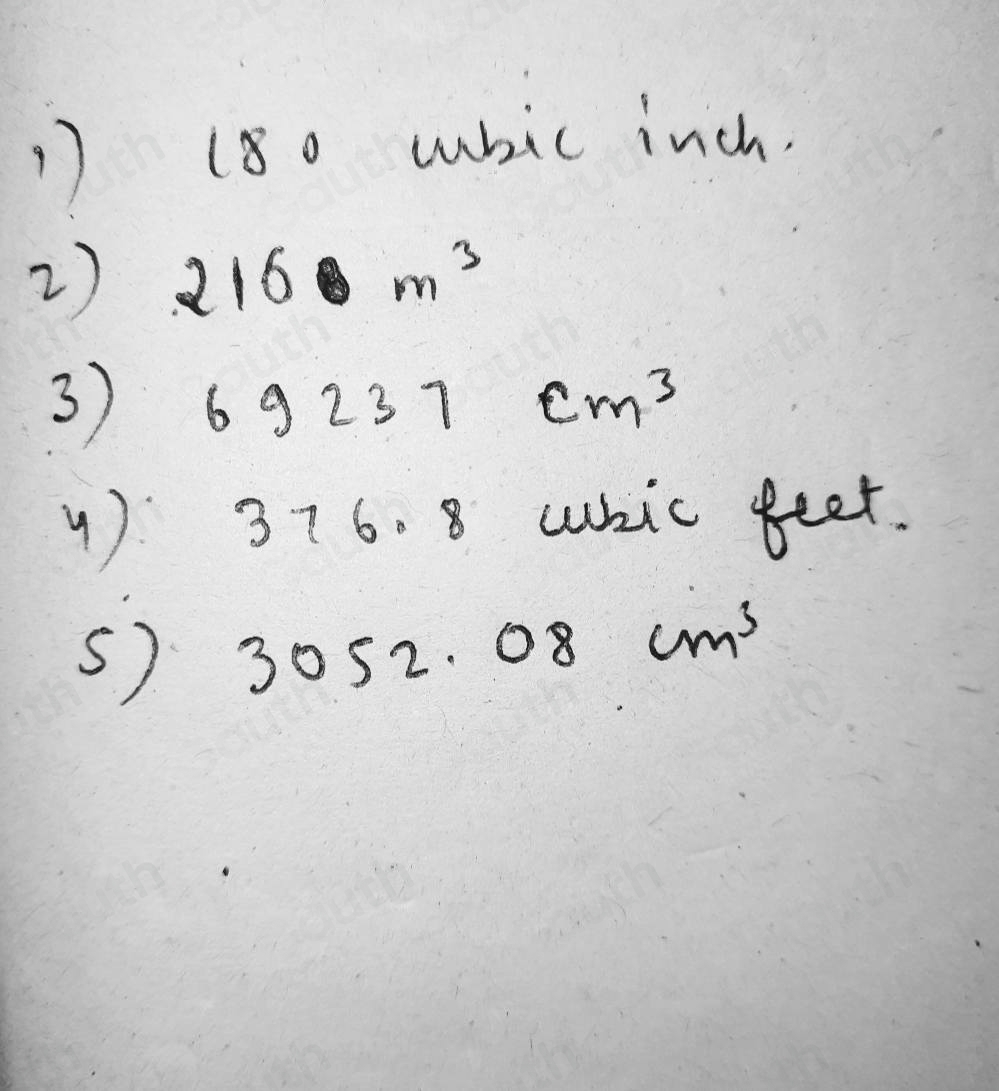 1) 180 cubic inch.
2) 216 m³
3) 69237 cm³
4) 376.8 cubic feet.
5) 3052.08 cm³